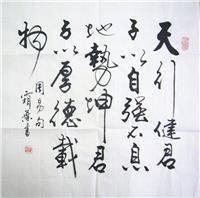 天行健君
子以自強不息
地勢坤君
子以厚德載
物
周易句